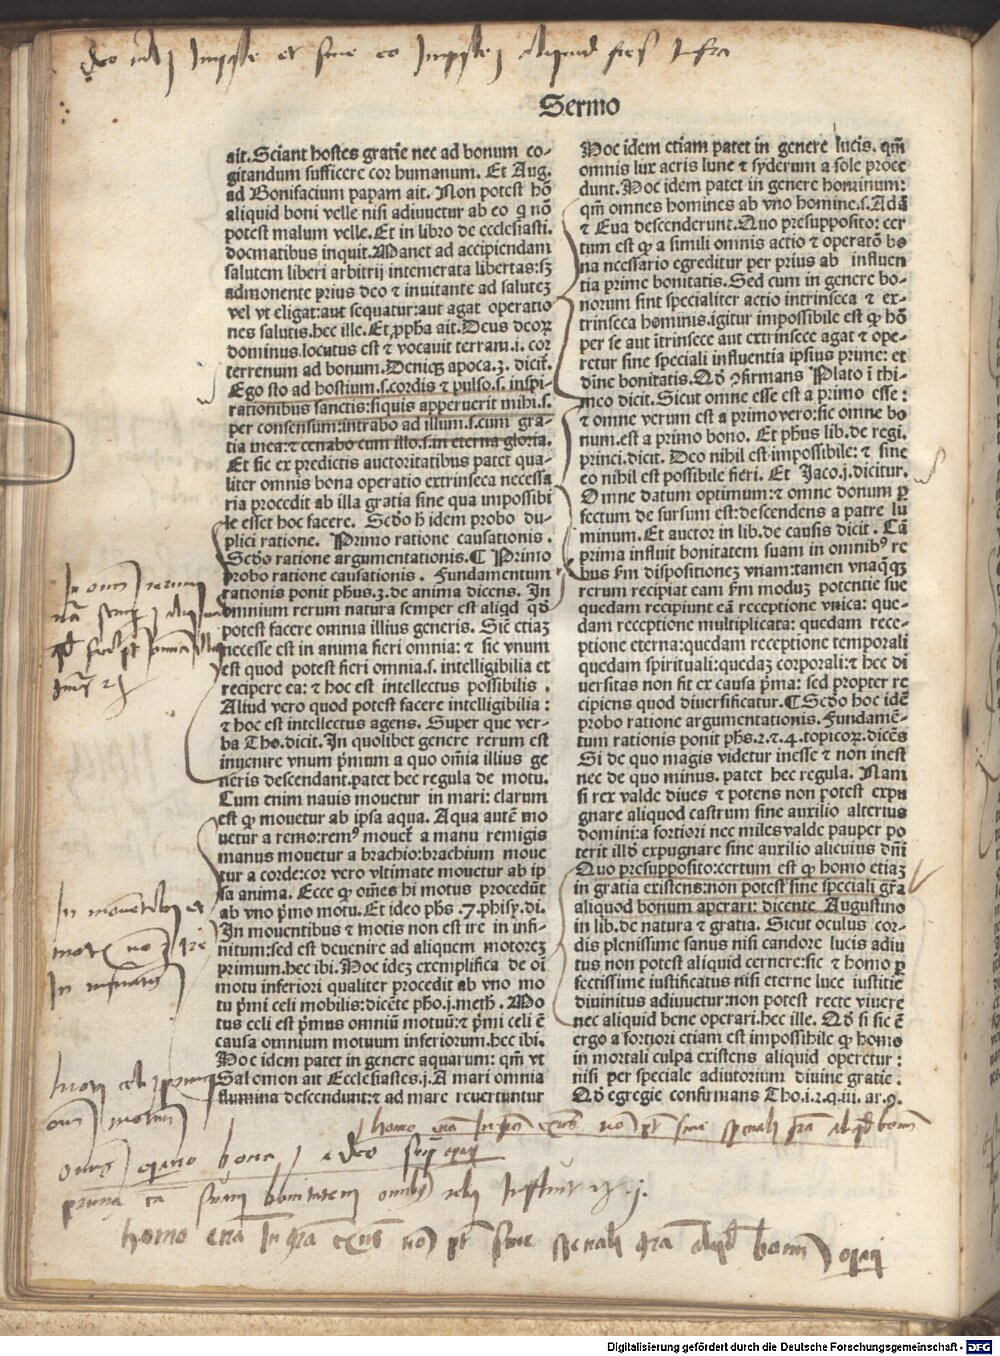 Sermo
ait. Sciant hostes gratie nec ad bonum co-
gitandum sufficere cor humanum. Et Aug.
ad Bonifacium papam ait. Non potest hō
aliquid boni velle nisi adiuuetur ab eo q nō
potest malum velle. Et in libro de ecclesiasti.
docmatibus inquit. Manet ad accipiendam
salutem liberi arbitrij intemerata libertas: sꝫ
admonente prius deo ⁊ inuitante ad saluteꝫ
vel vt eligat: aut sequatur: aut agat operatio
nes salutis. hec ille. Et ꝓpha ait. Deus deoꝝ
dominus. locutus est ⁊ vocauit terram. i. cor
terrenum ad bonum. Deniqꝫ apoca. 3. dicit.
Ego sto ad hostium. s. cordis ⁊ pulso. s. inspi-
rationibus sanctis: siquis apperuerit mihi. s.
per consensum: intrabo ad illum. s. cum gra-
tia mea: ⁊ cenabo cum illo. s. in eterna gloria.
Et sic ex predictis auctoritatibus patet qua-
liter omnis bona operatio extrinseca necessa
ria procedit ab illa gratia sine qua impossibi
le esset hoc facere. Scdo h̄ idem probo du-
plici ratione. Primo ratione causationis.
Scdo ratione argumentationis. ¶ Primo
probo ratione causationis. Fundamentum
rationis ponit phus. 3. de anima dicens. In
omnium rerum natura semper est aliqd qd
potest facere omnia illius generis. Sic etiaꝫ
necesse est in anima fieri omnia: ⁊ sic vnum
est quod potest fieri omnia. s. intelligibilia et
recipere ea: ⁊ hoc est intellectus possibilis.
Aliud vero quod potest facere intelligibilia:
⁊ hoc est intellectus agens. Super que ver-
ba Tho. dicit. In quolibet genere rerum est
inuenire vnum pmtum a quo oīa illius ge
neris descendant. patet hec regula de motu.
Cum enim nauis mouetur in mari: clarum
est ꝙ mouetur ab ipsa aqua. Aqua autē mo
uetur a remo: remꝰ mouet a manu remigis
manus mouetur a brachio: brachium moue
tur a corde: cor vero vltimate mouetur ab ip
sa anima. Ecce ꝙ oēs hi motus procedūt
ab vno pmo motu. Et ideo phs. 7. phisy. di.
In mouentibus ⁊ motis non est ire in infi-
nitum: sed est deuenire ad aliquem motoreꝫ
primum. hec ibi. Hoc ideꝫ exemplifica de oī
motu inferiori qualiter procedit ab vno mo
tu pmi celi mobilis: dicēte pho. j. meth. Mo
tus celi est pmus omniū motuū: ⁊ pmi celi ē
causa omnium motuum inferiorum. hec ibi.
Hoc idem patet in genere aquarum: qm vt
Salomon ait Ecclesiastes. j. A mari omnia
flumina descendunt: ⁊ ad mare reuertuntur
Hoc idem etiam patet in genere lucis. qm
omnis lux aeris lune ⁊ syderum a sole proce
dunt. Hoc idem patet in genere hominum:
qm omnes homines ab vno homine. s. Adā
⁊ Eua descenderunt. Quo presupposito: cer
tum est ꝙ a simili omnis actio ⁊ operatō bo
na necessario egreditur per prius ab influen
tia prime bonitatis. Sed cum in genere bo-
norum sint specialiter actio intrinseca ⁊ ex-
trinseca hominis. igitur impossibile est ꝙ hō
per se aut ītrinsece aut extrinsece agat ⁊ ope-
retur sine speciali influentia ipsius prime: et
dīne bonitatis. Qd ꝯfirmans Plato ī thi-
meo dicit. Sicut omne esse est a primo esse:
⁊ omne verum est a primo vero: sic omne bo
num. est a primo bono. Et phus lib. de regi.
princi. dicit. Deo nihil est impossibile: ⁊ sine
eo nihil est possibile fieri. Et Jaco. j. dicitur.
Omne datum optimum: ⁊ omne donum ꝑ
fectum de sursum est: descendens a patre lu
minum. Et auctor in lib. de causis dicit. Cā
prima influit bonitatem suam in omnibꝰ re
bus ſm dispositioneꝫ vnam: tamen vnaqꝫqꝫ
rerum recipiat eam ſm moduꝫ potentie sue
quedam recipiunt eā receptione vnica: que-
dam receptione multiplicata: quedam rece-
ptione eterna: quedam receptione temporali
quedam spirituali: quedaꝫ corporali: ⁊ hec di
uersitas non fit ex causa pma: sed propter re
cipiens quod diuersificatur. ¶ Scdo hoc idē
probo ratione argumentationis. Fundamē-
tum rationis ponit phs. 2. ⁊ 4. topicoꝝ. dicēs
Si de quo magis videtur inesse ⁊ non inest
nec de quo minus. patet hec regula. Nam
si rex valde diues ⁊ potens non potest expu
gnare aliquod castrum sine auxilio alterius
domini: a fortiori nec miles valde pauper po
terit illd expugnare sine auxilio alicuius dnī
Quo presupposito: certum est ꝙ homo etiaꝫ
in gratia existens: non potest sine speciali gr̄a
aliquod bonum aperari: dicente Augustino
in lib. de natura ⁊ gratia. Sicut oculus cor-
dis plenissime sanus nisi candore lucis adiu
tus non potest aliquid cernere: sic ⁊ homo ꝑ
fectissime iustificatus nisi eterne luce iustitie
diuinitus adiuuetur: non potest recte viuere
nec aliquid bene operari. hec ille. Qd si sic ē
ergo a fortiori etiam est impossibile ꝙ homo
in mortali culpa existens aliquid operetur:
nisi per speciale adiutorium diuine gratie.
Qd egregie confirmans Tho. i. 2. q. iii. ar. 9.
Digitalisierung gefördert durch die Deutsche Forschungsgemeinschaft - DFG